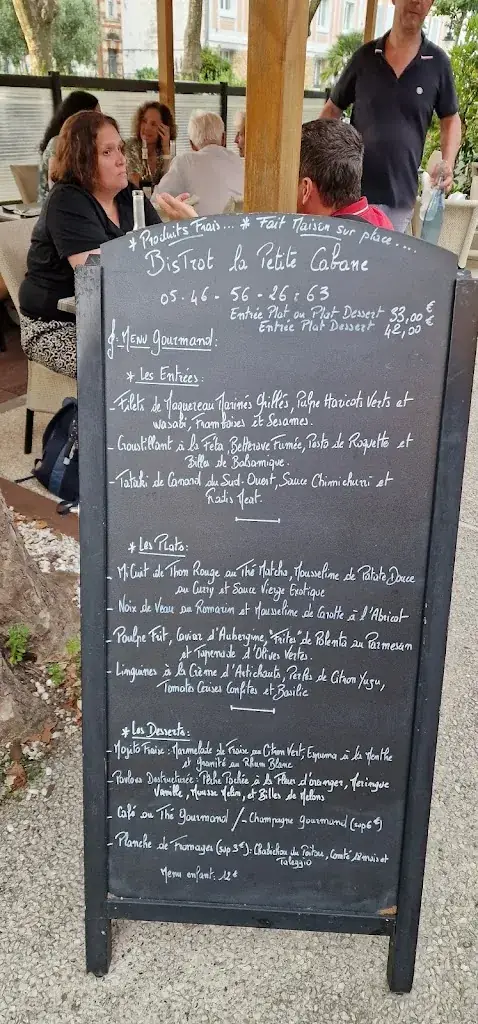 * Produits Frais... * Fait Maison sur place....
BisTrot la Petite Cabane
05-46-56-26-63
Entrée Plat ou Plat Dessert 33,00 €
Entrée Plat Dessert 42,00 €
Menu Gourmand:
* Les Entrées:
- Filets de Maquereau Marinés Grillés, Pulpe Haricots Verts et
wasabi, Framboises et Sésames.
- Croustillant à la Féta, Betterave Fumée, Pesto de Roquette et
Billes de Balsamique.
- Tataki de Canard du Sud-Ouest, Sauce Chimichurri et
Radis Meat.
* Les Plats:
- Mi Cuit de Thon Rouge au Thé Matcha, Mousseline de Patate Douce
au Curry et Sauce Vierge Exotique
- Noix de Veau au Romarin et Mousseline de Carotte à l'Abricot
- Poulpe Frit, Caviar d'Aubergine, "Frites" de Polenta au Parmesan
et Tapenade d'Olives Vertes.
- Linguines à la Crème d'Artichauts, Perles de Citron Yuzu,
Tomates Cerises Confites et Basilic
* Les Desserts:
- Mojito Fraise: Marmelade de Fraise au Citron Vert, Espuma à la Menthe
et granité au Rhum Blanc
- Pavlova Destructurée: Pêche Pochée à la Fleur d'oranger, Meringue
Vanille, Mousse Melon, et Billes de Melons
- Café ou Thé Gourmand / - Champagne gourmand (sup 6€)
- Planche de Fromages (sup 3€): Chabichou du Poitou, Comté et
Taleggio
Menu enfant: 12 €